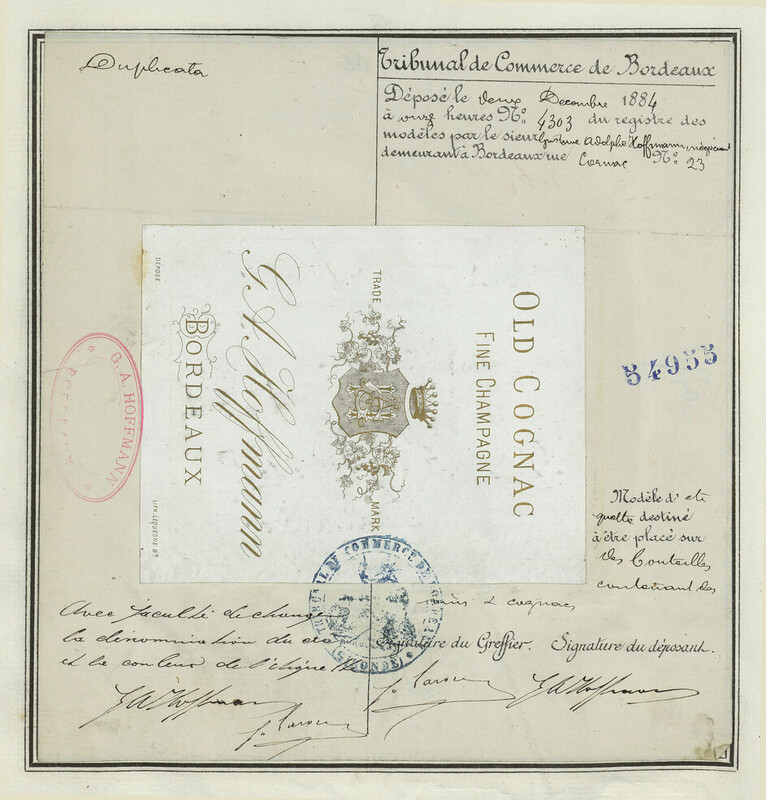 Duplicata
Tribunal de Commerce de Bordeaux
Déposé le deux Decembre 1884
à onze heures No. 4303 du registre des
modèles par le sieur Gustave Adolphe Hoffmann, négociant
demeurant à Bordeaux rue Cornac No. 23
OLD COGNAC
FINE CHAMPAGNE
TRADE
MARK
G. A. Hoffmann
BORDEAUX
DÉPOSÉ
LITH. LEQUESNE Bx
G. A. HOFFMANN
BORDEAUX
54955
Modèle d'éti
quette destiné
à être placé sur
des bouteilles
contenant des
vins & cognacs
TRIBUNAL DE COMMERCE DE BORDEAUX
(GIRONDE)
Avec faculté de changer
la dénomination du
et la couleur de l'étiquette
Signature du Greffier. Signature du déposant.
G A Hoffmann
G A Hoffmann